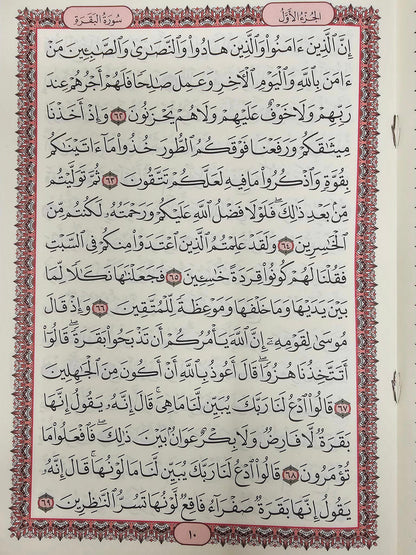 الجزء الأول
سورة البقرة
إِنَّ ٱلَّذِينَ ءَامَنُوا۟ وَٱلَّذِينَ هَادُوا۟ وَٱلنَّصَٰرَىٰ وَٱلصَّٰبِـِٔينَ مَنْ
ءَامَنَ بِٱللَّهِ وَٱلْيَوْمِ ٱلْءَاخِرِ وَعَمِلَ صَٰلِحًا فَلَهُمْ أَجْرُهُمْ عِندَ
رَبِّهِمْ وَلَا خَوْفٌ عَلَيْهِمْ وَلَا هُمْ يَحْزَنُونَ ٦٢ وَإِذْ أَخَذْنَا
مِيثَٰقَكُمْ وَرَفَعْنَا فَوْقَكُمُ ٱلطُّورَ خُذُوا۟ مَآ ءَاتَيْنَٰكُم
بِقُوَّةٍ وَٱذْكُرُوا۟ مَا فِيهِ لَعَلَّكُمْ تَتَّقُونَ ٦٣ ثُمَّ تَوَلَّيْتُم
مِّنۢ بَعْدِ ذَٰلِكَ ۖ فَلَوْلَا فَضْلُ ٱللَّهِ عَلَيْكُمْ وَرَحْمَتُهُۥ لَكُنتُم مِّنَ
ٱلْخَٰسِرِينَ ٦٤ وَلَقَدْ عَلِمْتُمُ ٱلَّذِينَ ٱعْتَدَوْا۟ مِنكُمْ فِى ٱلسَّبْتِ
فَقُلْنَا لَهُمْ كُونُوا۟ قِرَدَةً خَٰسِـِٔينَ ٦٥ فَجَعَلْنَٰهَا نَكَٰلًا لِّمَا
بَيْنَ يَدَيْهَا وَمَا خَلْفَهَا وَمَوْعِظَةً لِّلْمُتَّقِينَ ٦٦ وَإِذْ قَالَ
مُوسَىٰ لِقَوْمِهِۦٓ إِنَّ ٱللَّهَ يَأْمُرُكُمْ أَن تَذْبَحُوا۟ بَقَرَةً ۖ قَالُوٓا۟
أَتَتَّخِذُنَا هُزُوًا ۖ قَالَ أَعُوذُ بِٱللَّهِ أَنْ أَكُونَ مِنَ ٱلْجَٰهِلِينَ
٦٧ قَالُوا۟ ٱدْعُ لَنَا رَبَّكَ يُبَيِّن لَّنَا مَا هِىَ ۚ قَالَ إِنَّهُۥ يَقُولُ إِنَّهَا
بَقَرَةٌ لَّا فَارِضٌ وَلَا بِكْرٌ عَوَانٌۢ بَيْنَ ذَٰلِكَ ۖ فَٱفْعَلُوا۟ مَا
تُؤْمَرُونَ ٦٨ قَالُوا۟ ٱدْعُ لَنَا رَبَّكَ يُبَيِّن لَّنَا مَا لَوْنُهَا ۚ قَالَ إِنَّهُۥ
يَقُولُ إِنَّهَا بَقَرَةٌ صَفْرَآءُ فَاقِعٌ لَّوْنُهَا تَسُرُّ ٱلنَّٰظِرِينَ ٦٩
١٠